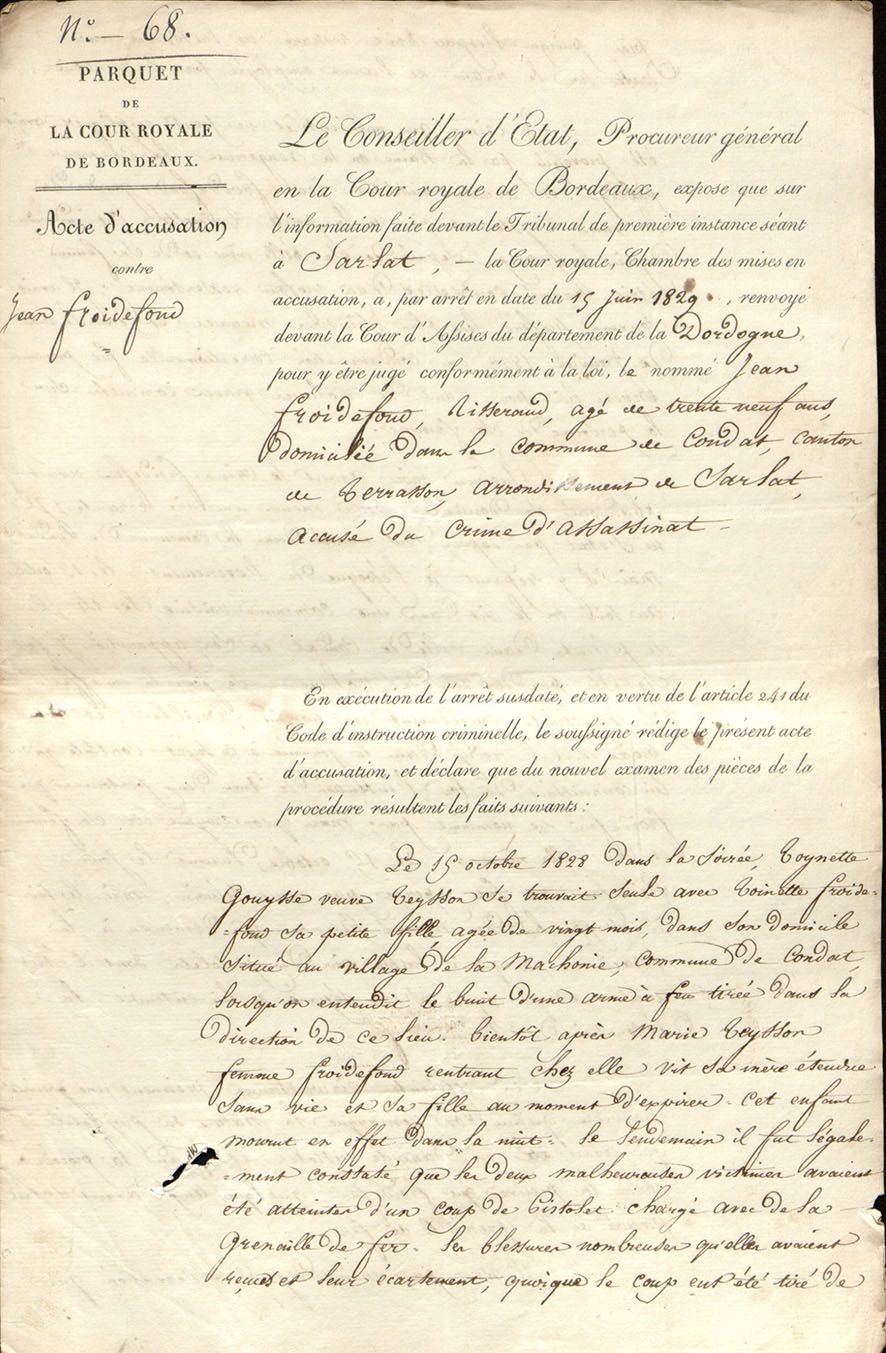 N.° — 68.
PARQUET
DE
LA COUR ROYALE
DE BORDEAUX.
Acte d'accusation
contre
Jean froidefond
Le Conseiller d'Etat, Procureur général
en la Cour royale de Bordeaux, expose que sur
l'information faite devant le Tribunal de première instance séant
à Sarlat, — la Cour royale, Chambre des mises en
accusation, a, par arrêt en date du 15 Juin 1829, renvoyé
devant la Cour d'Assises du département de la Dordogne,
pour y être jugé conformément à la loi, le nommé Jean
froidefond, tisserand, agé de trente neuf ans,
domicilié dans la commune de Condat, canton
de terrasson, arrondissement de Sarlat,
accusé du crime d'assassinat —
En exécution de l'arrêt susdaté, et en vertu de l'article 241 du
Code d'instruction criminelle, le soussigné rédige le présent acte
d'accusation, et déclare que du nouvel examen des pièces de la
procédure résultent les faits suivants :
Le 15 octobre 1828 dans la soirée, toynette
Gouysse veuve teysson se trouvait seule avec toinette froide-
=fond sa petite fille, agée de vingt mois, dans son domicile
situé au village de la Machonie, commune de Condat,
lorsqu'on entendit le bruit d'une arme à feu tirée dans la
direction de ce lieu. bientôt après Marie teysson
femme froidefond rentrant chez elle vit sa mère étendue
sans vie et sa fille au moment d'expirer. cet enfant
mourut en effet dans la nuit. le lendemain il fut légale-
=ment constaté que les deux malheureuses victimes avaient
été atteintes d'un coup de pistolet chargé avec de la
grenaille de fer. les blessures nombreuses qu'elles avaient
reçues et leur écartement, quoique le coup eut été tiré de